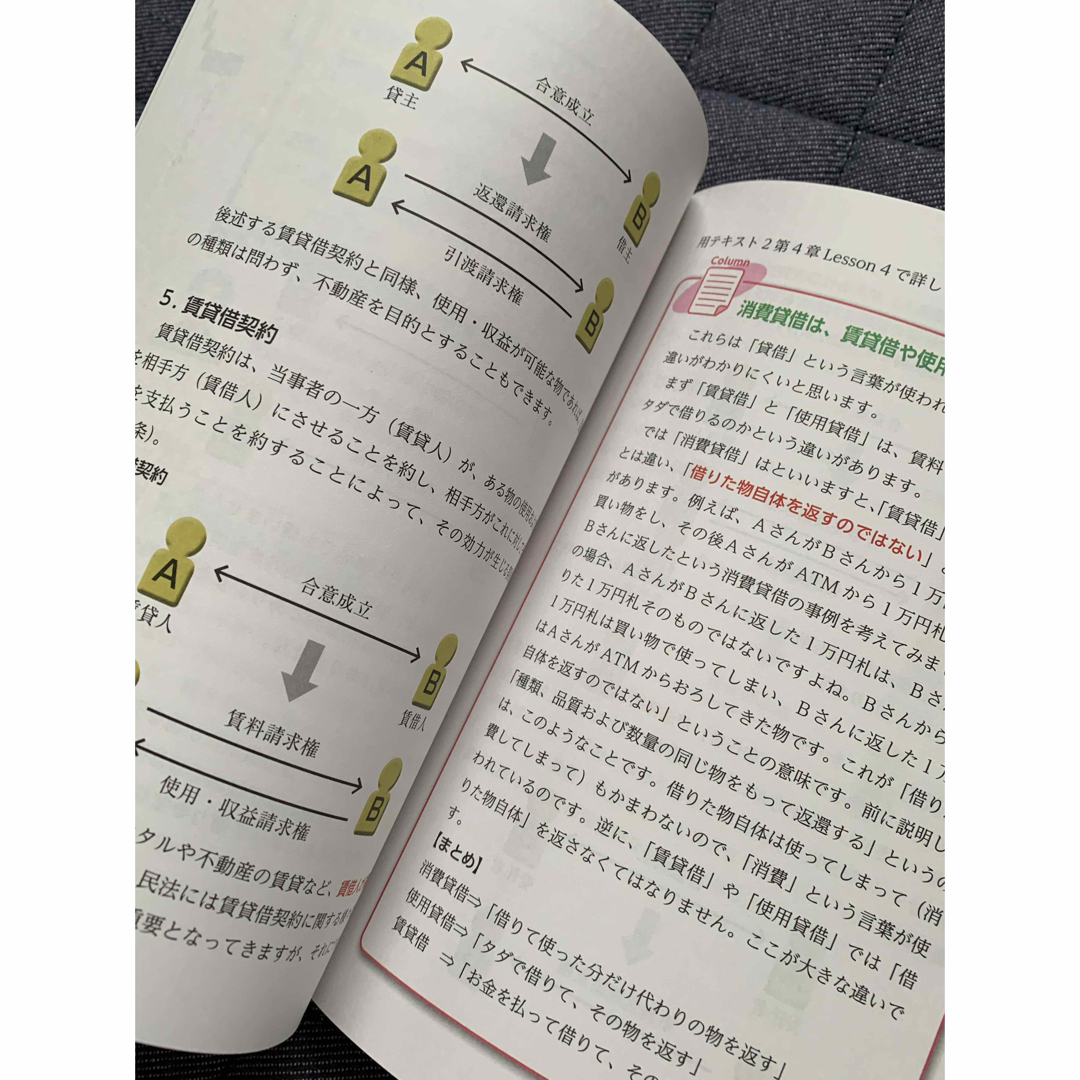 A
貸主
合意成立
B
借主
A
返還請求権
引渡請求権
B
後述する賃貸借契約と同様、使用・収益が可能な物であれば
の種類は問わず、不動産を目的とすることもできます。
5. 賃貸借契約
賃貸借契約は、当事者の一方（賃貸人）が、ある物の使用
を相手方（賃借人）にさせることを約し、相手方がこれに対し
を支払うことを約することによって、その効力が生じる
条）。
契約
A
賃貸人
合意成立
B
賃借人
賃料請求権
使用・収益請求権
B
タルや不動産の賃貸など、賃借人
民法には賃貸借契約に関する
重要となってきますが、それに
用テキスト2第4章 Lesson 4で詳し
Column
消費貸借は、賃貸借や使用
これらは「貸借」という言葉が使われ
違いがわかりにくいと思います。
まず「賃貸借」と「使用貸借」は、賃料
タダで借りるのかという違いがあります。
では「消費貸借」はといいますと、「賃貸借」
とは違い、「借りた物自体を返すのではない」
があります。例えば、AさんがBさんから1万円
買い物をし、その後AさんがATMから1万円札
Bさんに返したという消費貸借の事例を考えてみま
の場合、AさんがBさんに返した1万円札は、Bさ
りた1万円札そのものではないですよね。Bさんから
1万円札は買い物で使ってしまい、Bさんに返した1万
はAさんがATMからおろしてきた物です。これが「借り
自体を返すのではない」ということの意味です。前に説明し
「種類、品質および数量の同じ物をもって返還する」というの
は、このようなことです。借りた物自体は使ってしまって（消
費してしまって）もかまわないので、「消費」という言葉が使
われているのです。逆に、「賃貸借」や「使用貸借」では「借
りた物自体」を返さなくてはなりません。ここが大きな違いで
す。
【まとめ】
消費貸借⇒「借りて使った分だけ代わりの物を返す」
使用貸借⇒「タダで借りて、その物を返す」
賃貸借 ⇒「お金を払って借りて、その